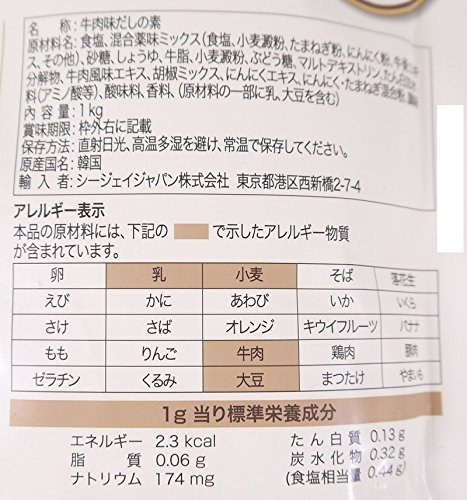 名 称:牛肉味だしの素
原材料名:食塩、混合薬味ミックス(食塩、小麦澱粉、たまねぎ粉、にんにく粉、
ス、その他)、砂糖、しょうゆ、牛脂、小麦澱粉、ぶどう糖、マルトデキストリン、たん白
分解物、牛肉風味エキス、胡椒ミックス、にんにくエキス、にんにく・たまねぎ混合
料(アミノ酸等)、酸味料、香料、(原材料の一部に乳、大豆を含む)
内 容 量:1kg
賞味期限:枠外右に記載
保存方法:直射日光、高温多湿を避け、常温で保存してください。
原産国名:韓国
輸 入 者:シージェイジャパン株式会社 東京都港区西新橋2-7-4
アレルギー表示
本品の原材料には、下記の で示したアレルギー物質
が含まれています。
卵 乳 小麦 そば 落花生
えび かに あわび いか いくら
さけ さば オレンジ キウイフルーツ バナナ
もも りんご 牛肉 鶏肉 豚肉
ゼラチン くるみ 大豆 まつたけ やまいも
1g 当り標準栄養成分
エネルギー 2.3 kcal たん白質 0.13 g
脂 質 0.06 g 炭水化物 0.32 g
ナトリウム 174 mg (食塩相当量 0.44 g)